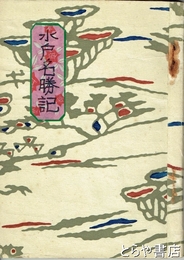 水戸名勝記
とらや書店